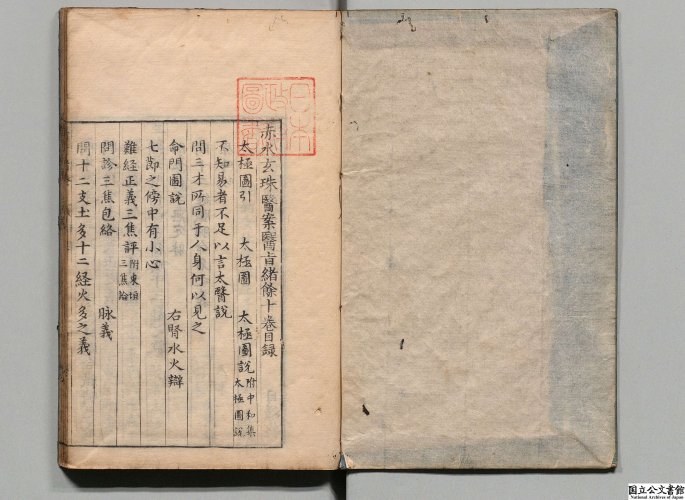 赤水玄珠醫案醫旨緒餘十巻目録
太極圖引　太極圖　太極圖説 附中和集太極圖説
不知易者不足以言太醫説
問三才所同于人身何以見之
命門圖説　右腎水火辯
七節之傍中有小心
難経正義三焦評 附東垣三焦論
問診三焦包絡　脉義
問十二支土多十二経火多之義
日本
政
圖
国立公文書館
National Archives of Japan